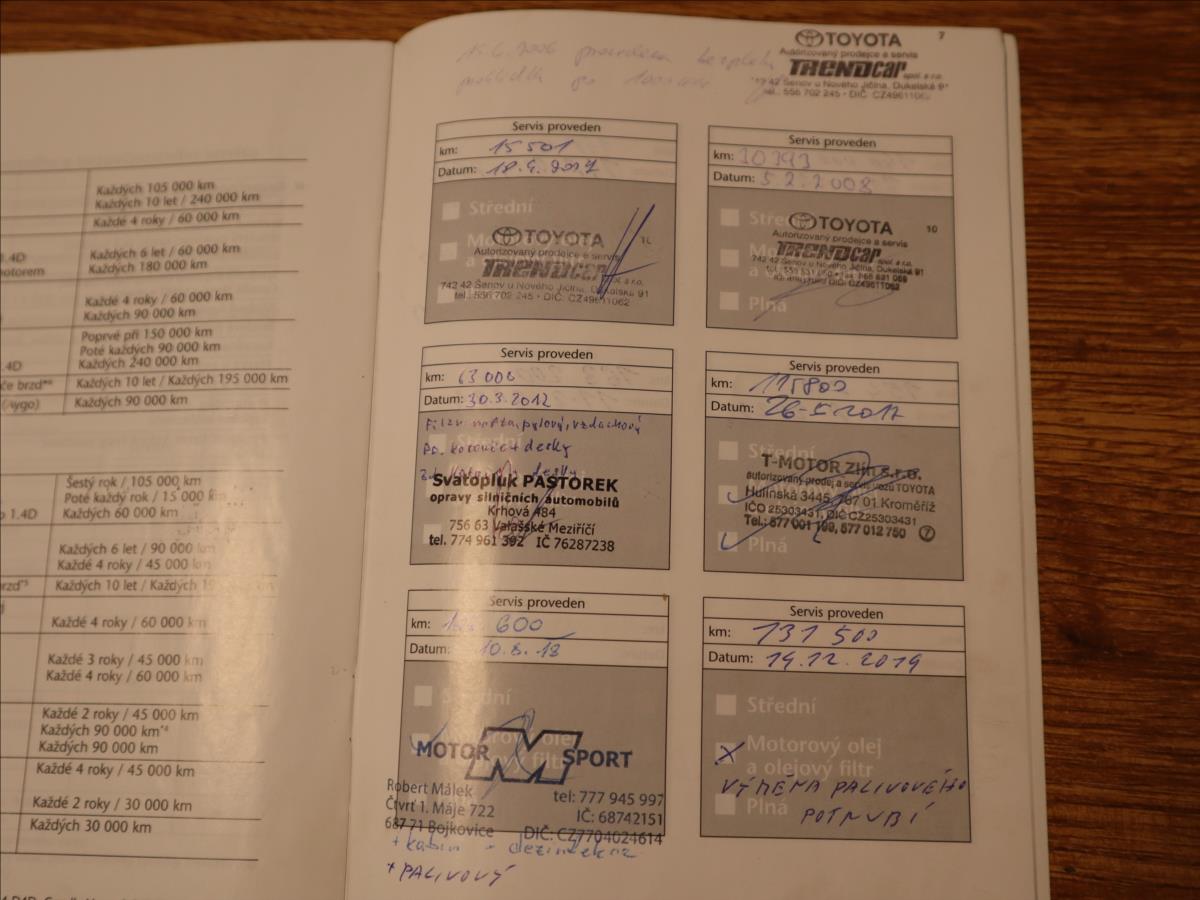 Každých 105 000 km
Každých 10 let / 240 000 km
Každé 4 roky / 60 000 km
1.4D
Každých 6 let / 60 000 km
motorem
Každých 180 000 km
Každé 4 roky / 60 000 km
Každých 90 000 km
Poprvé při 150 000 km
Poté každých 90 000 km
1.4D
Každých 240 000 km
če brzd
Každých 10 let / Každých 195 000 km
Každých 90 000 km
Šestý rok / 105 000 km
Poté každý rok / 15 000 km
o 1.4D
Každých 60 000 km
Každých 6 let / 90 000 km
Každé 4 roky / 45 000 km
Každých 10 let / Každých
Každé 4 roky / 60 000 km
Každé 3 roky / 45 000 km
Každé 4 roky / 60 000 km
Každé 2 roky / 45 000 km
Každých 90 000 km*⁴
Každých 90 000 km
Každé 4 roky / 45 000 km
Každé 2 roky / 30 000 km
Každých 30 000 km
7
TOYOTA
Autorizovaný prodejce a servis
TRENDcar spol. s r.o.
742 42 Šenov u Nového Jičína, Dukelská 91
tel.: 556 702 245 • DIČ: CZ49611062
Servis proveden
km: 15 501
Datum:
Střední
TOYOTA
Autorizovaný prodejce a servis
TRENDcar spol. s r.o.
742 42 Šenov u Nového Jičína, Dukelská 91
tel.: 556 702 245 • DIČ: CZ49611062
Servis proveden
km:
Datum: 5.2.2008
TOYOTA
10
Autorizovaný prodejce a servis
TRENDcar spol. s r.o.
742 42 Šenov u Nového Jičína, Dukelská 91
Plná
Servis proveden
km: 63 000
Datum: 30.3.2012
Svatopluk PASTOREK
opravy silničních automobilů
Krhová 484
756 63 Valašské Meziříčí
tel. 774 961 392 IČ 76287238
Servis proveden
km: 115800
Datum: 26-5.2017
Střední
T-MOTOR Zlín s.r.o.
autorizovaný prodej a servis vozů TOYOTA
Hulínská 3445, 767 01 Kroměříž
IČO 25303431, DIČ CZ25303431
Tel.: 577 001 199, 577 012 750 7
Plná
Servis proveden
km: 600
Datum: 10.8.18
Střední
MOTOR M SPORT
Robert Málek
tel: 777 945 997
Čtvrť 1. Máje 722
IČ: 68742151
687 71 Bojkovice
DIČ: CZ7704024614
+ PALIVOVÝ
Servis proveden
km: 131 500
Datum: 19.12.2019
Střední
Motorový olej
a olejový filtr
VÝMĚNA PALIVOVÉHO
Plná
POTRUBÍ